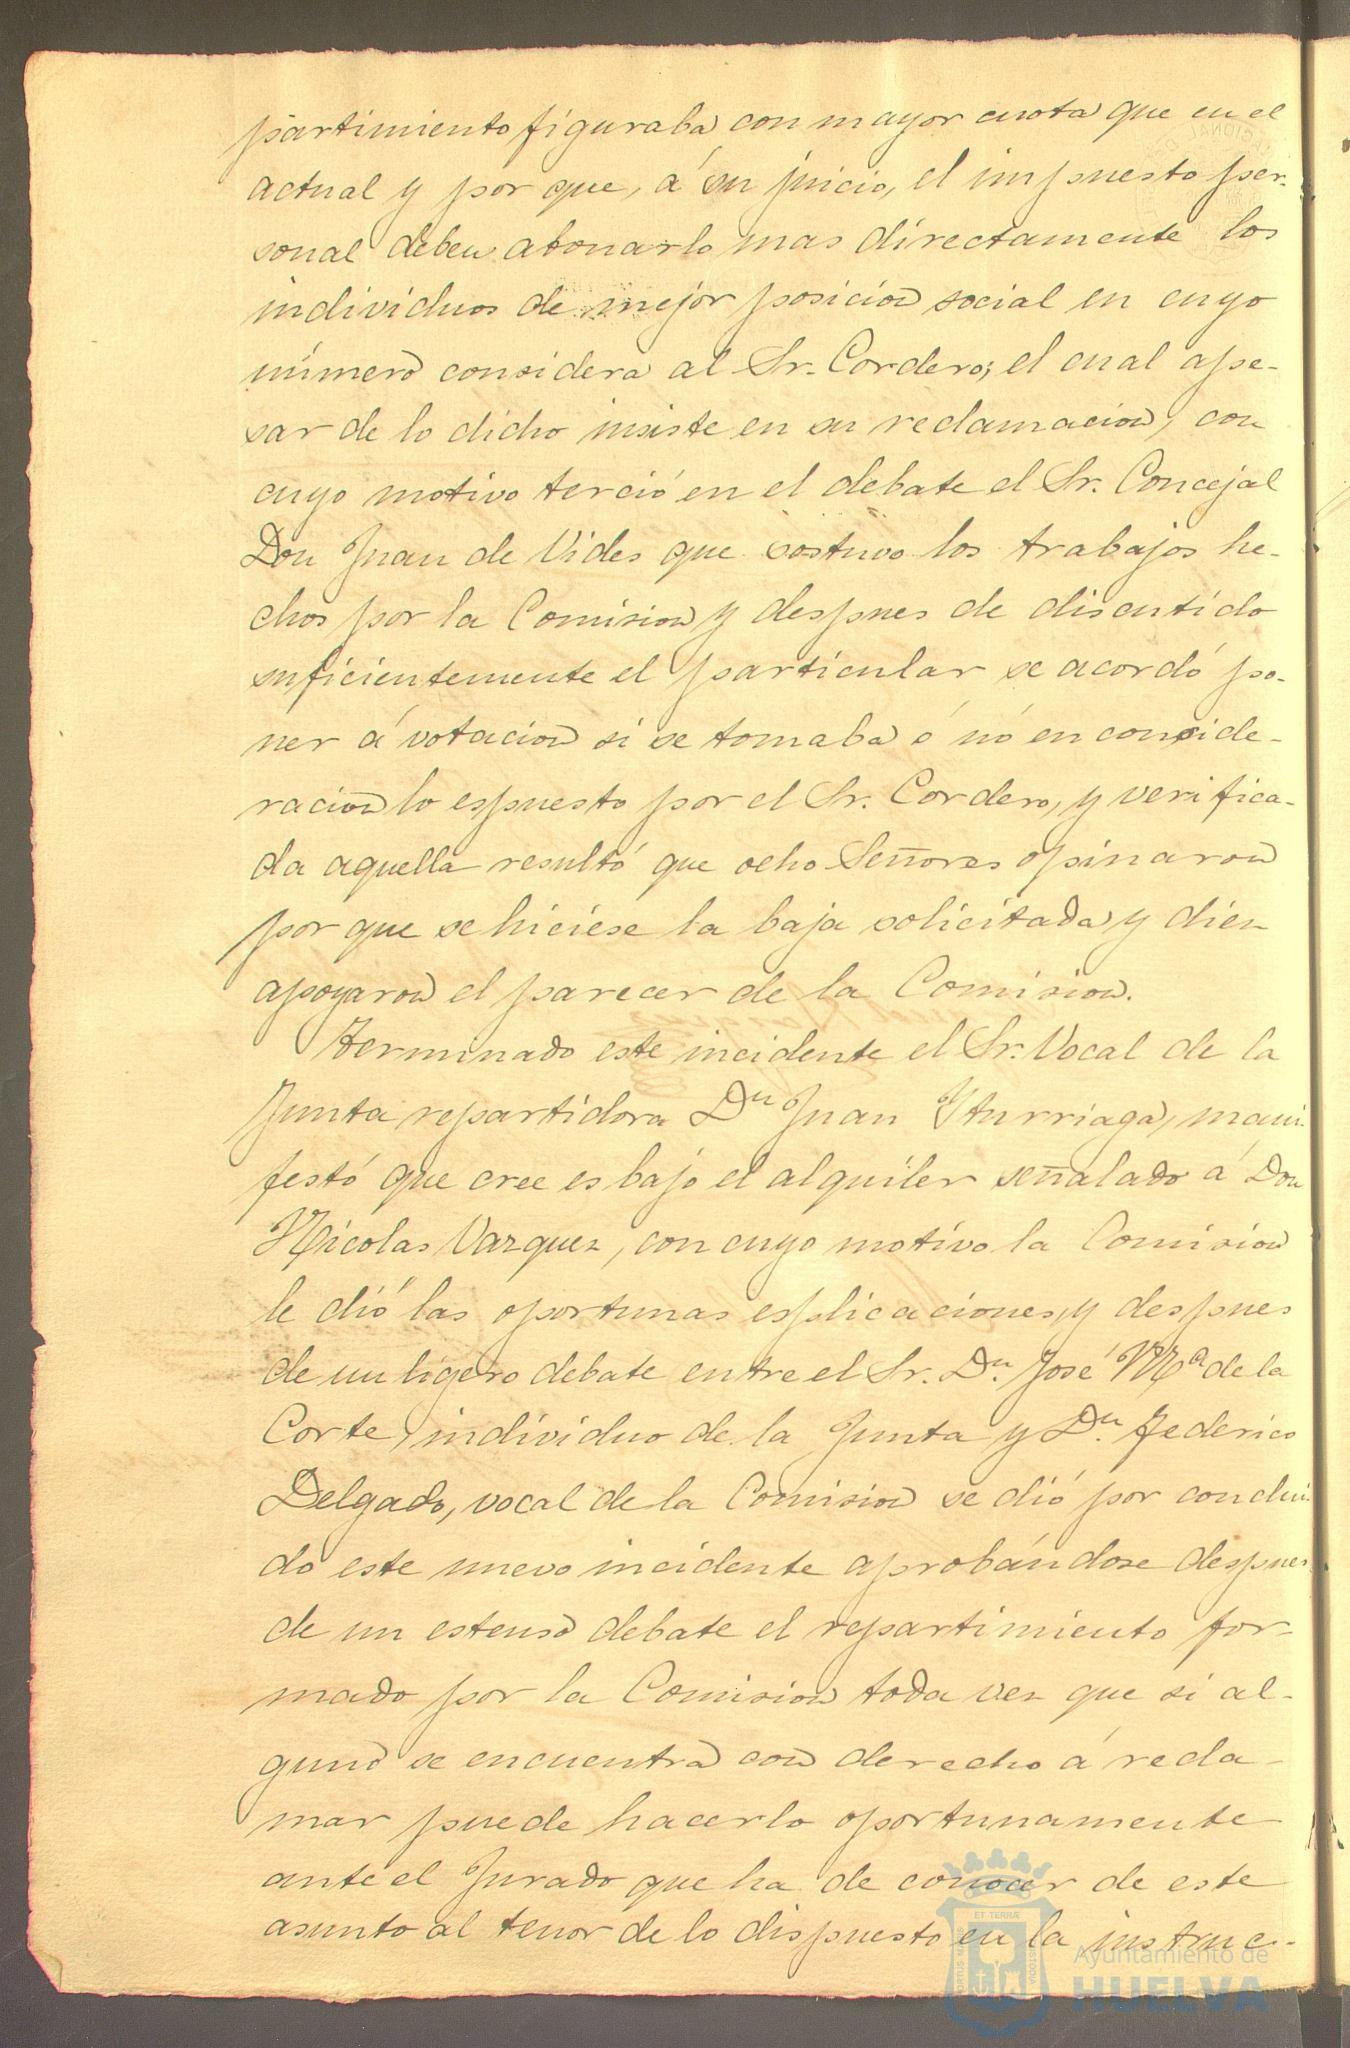 partimiento figuraba con mayor cuota que en el
actual y por que, á su juicio, el impuesto per-
sonal deben abonarlo mas directamente los
individuos de mejor posicion social en cuyo
número considera al Sr. Cordero; el cual ape-
sar de lo dicho insiste en su reclamacion, con
cuyo motivo terció en el debate el Sr. Concejal
Don Juan de Vides que sostuvo los trabajos he-
chos por la Comision y despues de discutido
suficientemente el particular se acordó po-
ner á votacion si se tomaba ó nó en conside-
racion lo espuesto por el Sr. Cordero, y verifica-
da aquella resultó que ocho Señores opinaron
por que se hiciese la baja solicitada y diez
apoyaron el parecer de la Comision.
Terminado este incidente el Sr. Vocal de la
Junta repartidora Dn Juan Yturriaga, mani-
festó que cree es bajo el alquiler señalado á Don
Nicolas Vazquez, con cuyo motivo la Comision
le dió las oportunas esplicaciones, y despues
de un ligero debate entre el Sr. Dn. José Mª de la
Corte, individuo de la Junta y Dn. Federico
Delgado, vocal de la Comision se dió por conclui-
do este nuevo incidente aprobándose despues
de un estenso debate el repartimiento for-
mado por la Comision toda vez que si al-
guno se encuentra con derecho á recla-
mar puede hacerlo oportunamente
ante el Jurado que ha de conocer de este
asunto al tenor de lo dispuesto en la instruc-
ET TERRÆ
Ayuntamiento de
HUELVA